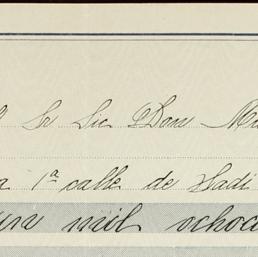 Sr Lic Don
1ª calle de
un mil ochoc